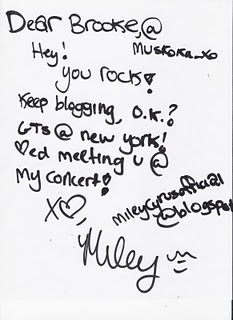 Dear Brooke,@
Muskoka_xo
Hey!
you rock!
Keep blogging, O.K.?
GTs @ new york!
♡ed meeting u @
My concert!
X♡,
mileycyrusofficial
@blogspot
Miley